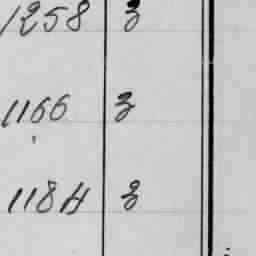 1258 3
1166 3
1184 3